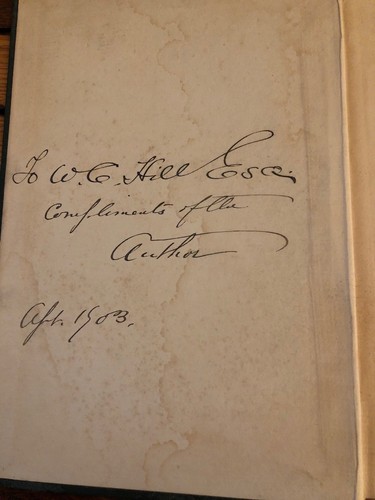 To W. C. Hill Esq.
Compliments of the
Author
Apr. 1903.